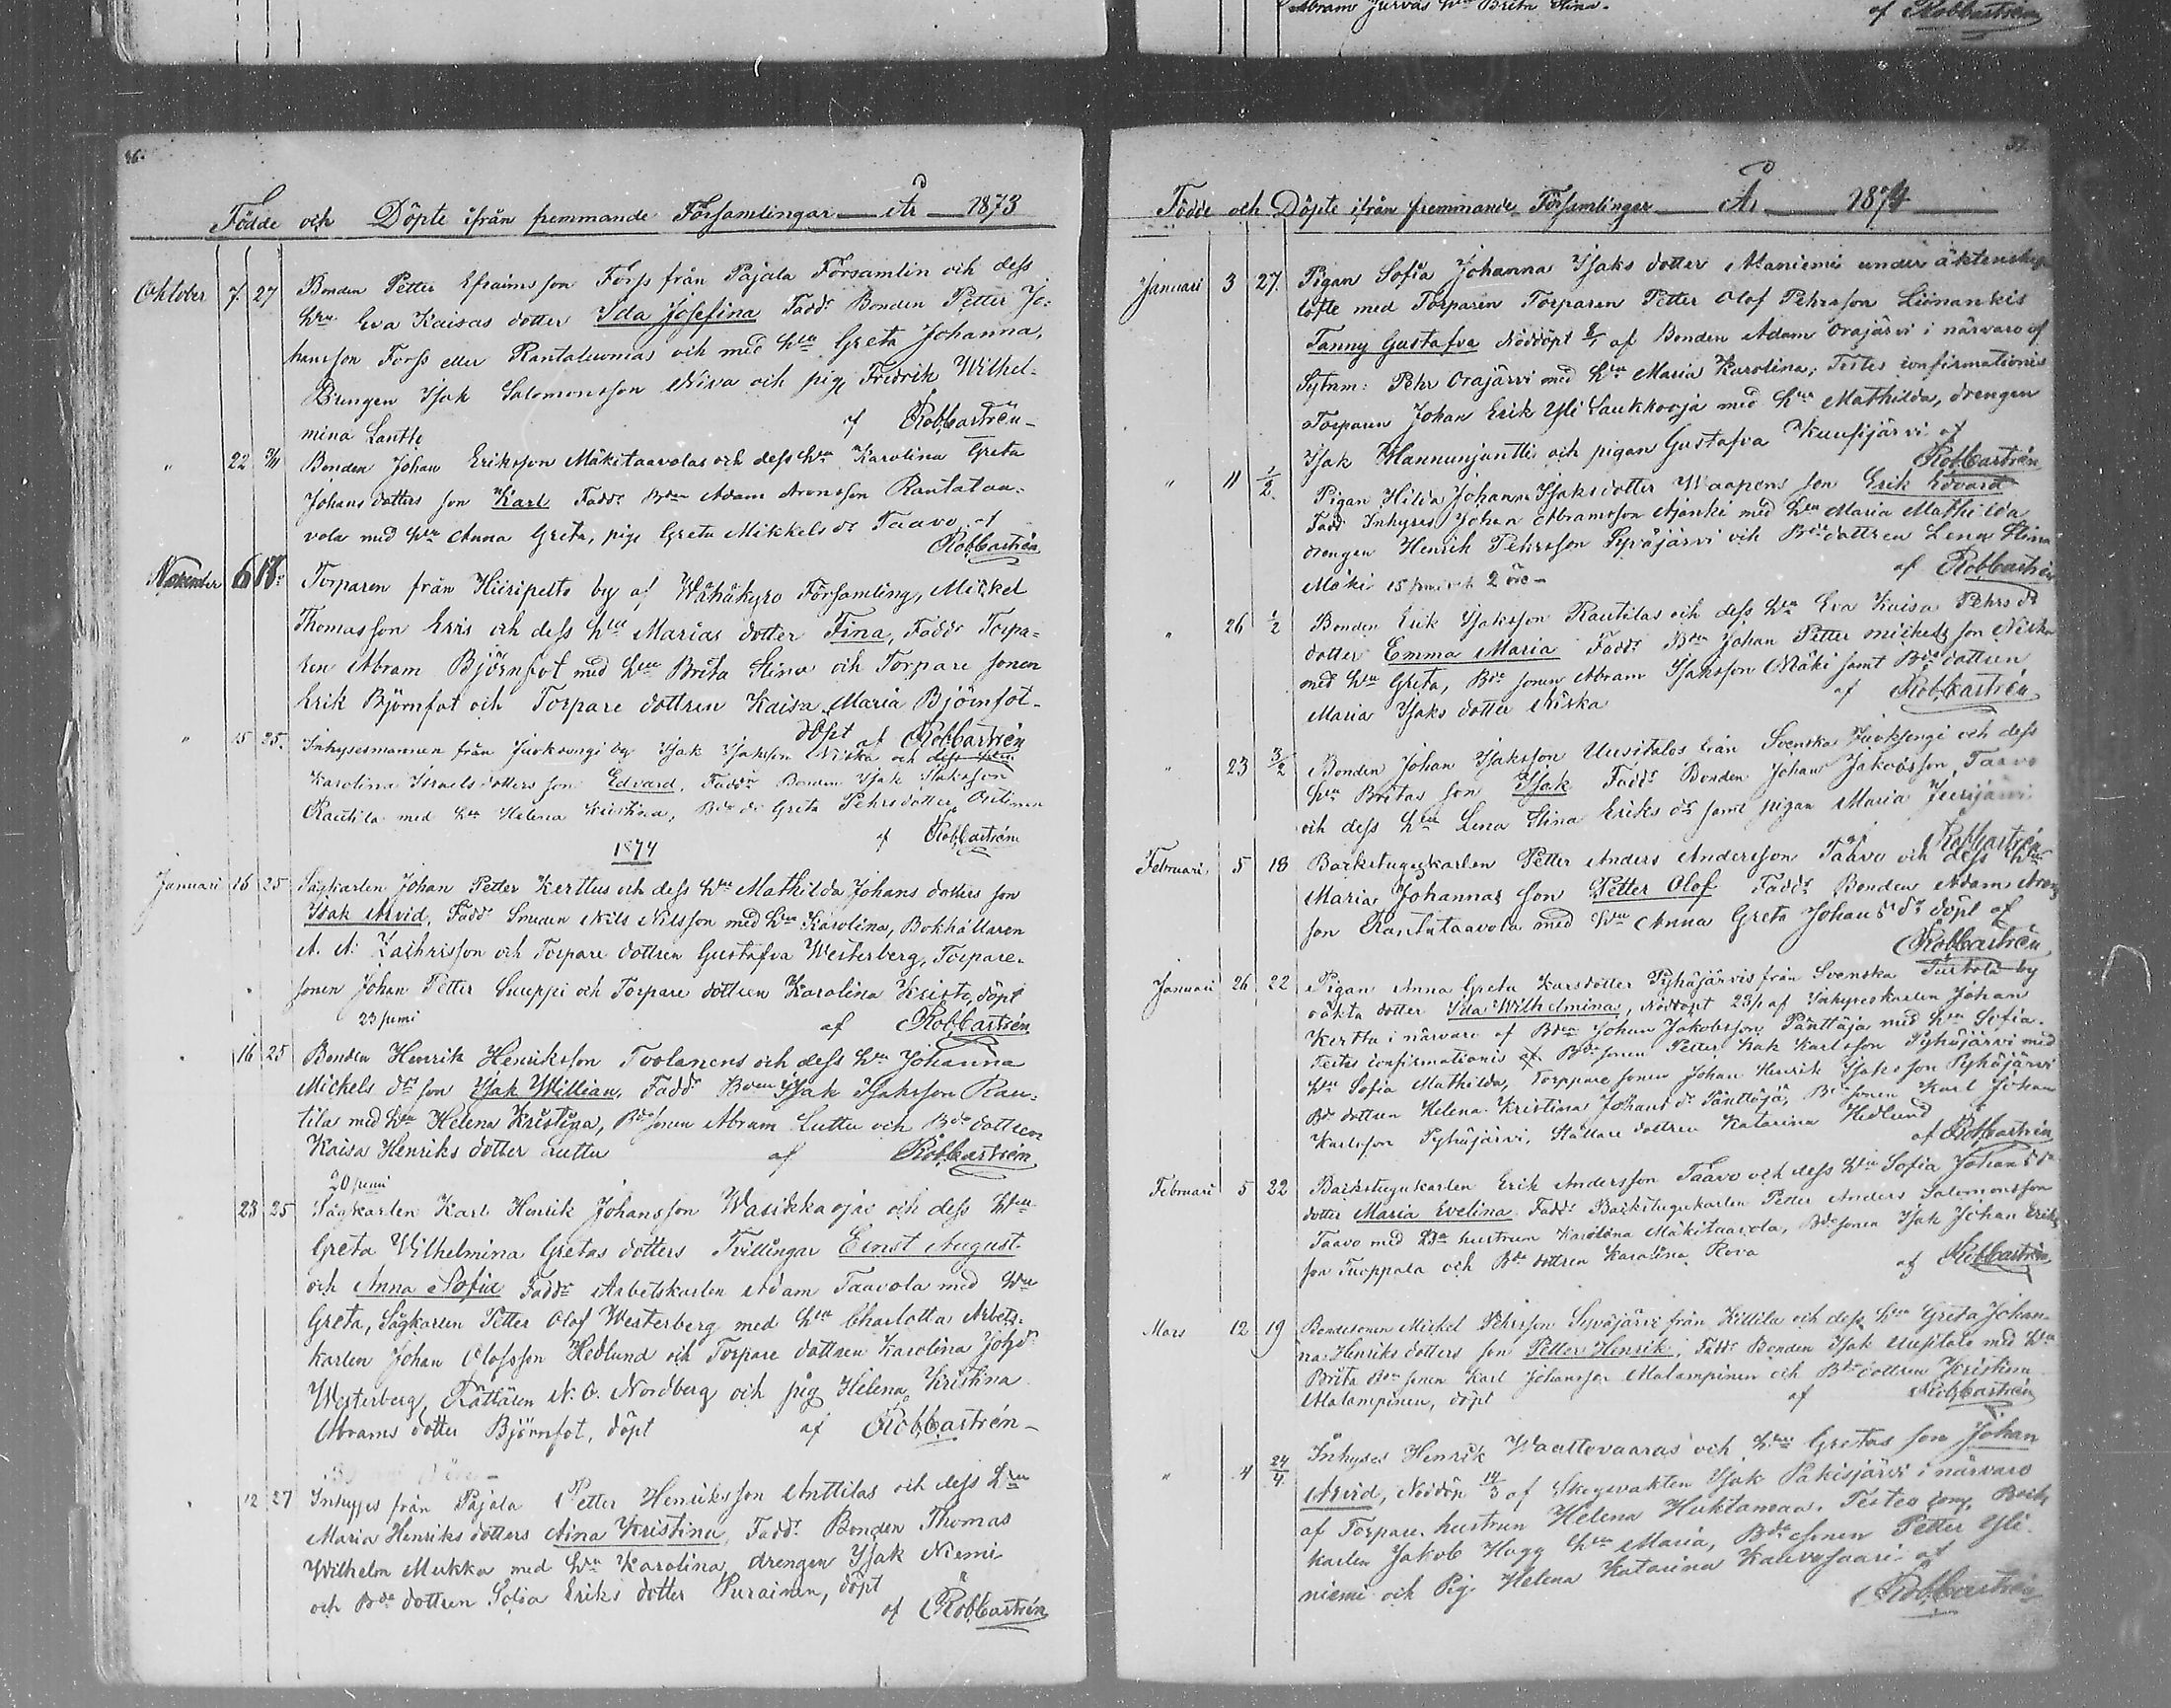 Abram Jurvas hru Brita Stina.
af RobCastrén
36.
Födde och Döpte ifrån fremmande Församlingar År 1873
Oktober 7. 27 Bonden Petter Efraimsson Forss från Pajala Församlin och dess
hru Eva Kaisas dotter Ida Josefina Faddr Bonden Petter Jo-
hansson Forss eller och med hru Greta Johanna,
Drengen Isak Salomonsson Niva och pig. Fredrik Wilhel-
mina Lantto af RobCastrén
" 22 Bonden Johan Eriksson Mäkitaavolas och dess hru Karolina Greta
Johans dotters son Karl Faddr Bden Adam Aronsson Rantataa-
vola med hru Anna Greta, pige Greta Mikkels dr Taavo af
RobCastrén
November 6 Torparen från Hiiripelto by af Församling, Mickel
Thomasson Kris och dess hru Marias dotter Fina, Faddr Torpa-
ren Abram Björnfot med hru Brita Stina och Torpare sonen
Erik Björnfot och Torpare dottren Kaisa Maria Björnfot
döpt af RobCastrén
" 15 25. Inhysesmannen från Juoksengi by Isak Isaksson Niska och dess
Karolina Israels dotters son Edvard, Faddr Bonden Isak Isaksson
Rautila med hru Helena Kristina, Bde dr Greta Pehrsdotter
af RobCastrén
1874
Januari 16 25 Sågkarlen Johan Petter Kerttus och dess hru Mathilda Johans dotters son
Isak Arvid, Faddr Smeden Nils Nilsson med hru Karolina, Bokhållaren
A. A. Zachrisson och Torpare dottren Gustafva Westerberg, Torpare-
sonen Johan Petter Seuppi och Torpare dottren Karolina Kristo, döpt
23 penni af RobCastrén
16 25 Bonden Henrik Henriksson Tvolanens och dess hru Johanna
Mickels dr son Isak Willian, Faddr Bden Isak Isaksson Rau-
tilas med hru Helena Kristina, Bde sonen Abram Luttu och Bde dottren
Kaisa Henriks dotter Luttu af RobCastrén
20 penni
23 25 Sågkarlen Karl Henrik Johansson Wasikkaojas och dess hru
Greta Vilhelmina Gretas dotters Tvillingar Ernst August
och Anna Sofia Faddr Arbetskarlen Adam Taavola med hru
Greta, Sågkarlen Petter Olof Westerberg med hru Charlotta, Arbets-
karlen Johan Olofsson Hedlund och Torpare dottren Karolina Johsdr
Westerberg, Rättälen N. O. Nordberg och pig Helena Kristina
Abrams dotter Björnfot, döpt af RobCastrén
12 27 Inhyses från Pajala Petter Henriksson Anttilas och dess hru
Maria Henriks dotters Aina Kristina, Faddr Bonden Thomas
Wilhelm Mukka med hru Karolina, drengen Isak Niemi
och Bde dottren Sofia Eriks dotter Purainen, döpt
af RobCastrén
Födde och Döpte ifrån fremmande Församlingar År 1874
Januari 3 27. Pigan Sofia Johanna Isaks dotter Alaniemi under äktenskaps
löfte med Torparen Torparen Petter Olof Pehrsson Liinankis
Fanny Gustafva Nöddöpt af Bonden Adam Orajärvi i närvaro af
Sytnm: Pehr Orajärvi med hru Maria Karolina; Testes confirmationis
Torparen Johan Erik Yli Laukkooja med hru Mathilda, drengen
Isak Hannunjuntti och pigan Gustafva Kuusijärvi af
RobCastrén
" 11 1/2. Pigan Hilda Johanna Isaksdotter Waapens son Erik Edvard
Fadd Inhyses Johan Abramsson Ajanki med hru Maria Mathilda
drengen Henrik Pehrsson Syväjärvi och Bde dottren Lena Stina
Mäki 15 penni och 2 öre af RobCastrén
" 26 1/2 Bonden Erik Isaksson Rautilas och dess hru Eva Kaisa Pehrs dr
dotter Emma Maria Faddr Bden Johan Petter Mickels son Niska
med hru Greta, Bde sonen Abram Isaksson Mäki samt Bde dottren
Maria Isaks dotter Niska af RobCastrén
" 23 3/2 Bonden Johan Isaksson Uusitalos från Svenska Juoksengi och dess
hru Britas son Isak Faddr Bonden Johan Jakobsson Taavo
och dess hru Lena Stina Eriks dr samt pigan Maria Juurijärvi
af RobCastrén
Februari 5 18 Backstugukarlen Petter Anders Andersson Taavo och dess hru
Maria Johannas son Petter Olof Faddr Bonden Adam Arons
son Rantataavola med hru Anna Greta Johans dr döpt af
RobCastrén
Januari 26 22 Pigan Anna Greta Karsdotter Pyhäjärvis från Svenska Turtola by
oäkta dotter Ida Wilhelmina, Nöddöpt 23/1 af Inhyseskarlen Johan
Kerttu i närvaro af Bden Johan Jakobsson Pänttäja med hru Sofia.
Testes confirmationis af Bde sonen Petter Isak Karlsson Pyhäjärvi med
hru Sofia Mathilda, Torppare sonen Johan Henrik Isaksson Pyhäjärvi
Bde dottren Helena Kristina Johans dr Pänttäjä, Bde sonen Karl Johan
Karlsson Pyhäjärvi, Hållare dottren Katarina Hedlund
af RobCastrén
Februari 5 22 Backstugukarlen Erik Andersson Taavo och dess hru Sofia Johans dr
dotter Maria Evelina Faddr Backstugukarlen Petter Anders Salomonsson
Taavo med Bde hustrun Karolina Mäkitaavola, Bde sonen Isak Johan Eriks
son Tuoppala och Bde dottren Karolina Rova af RobCastrén
Mars 12 19 Bondesonen Mickel Pehrsson Syväjärvi från Kittila och dess hru Greta Johan-
na Henriks dotters son Petter Henrik; Faddr Bonden Isak Uusitalo med hru
Brita Bde sonen Karl Johansson Alalampinen och Bde dottren Kristina
Alalampinen, döpt af RobCastrén
" 4 24/4 Inhyses Henrik Waattovaaras och hru Gretas son Johan
Arvid, Nöddöp 14/3 af Skogsvakten Isak Pakisjärvi i närvaro
af Torpare hustrun Helena Huhtamaa. Testes conf. Back
karlen Jakob Hugg hru Maria, Bde sonen Petter Yli-
niemi och Pig. Helena Katarina Kauvosaari af
RobCastrén